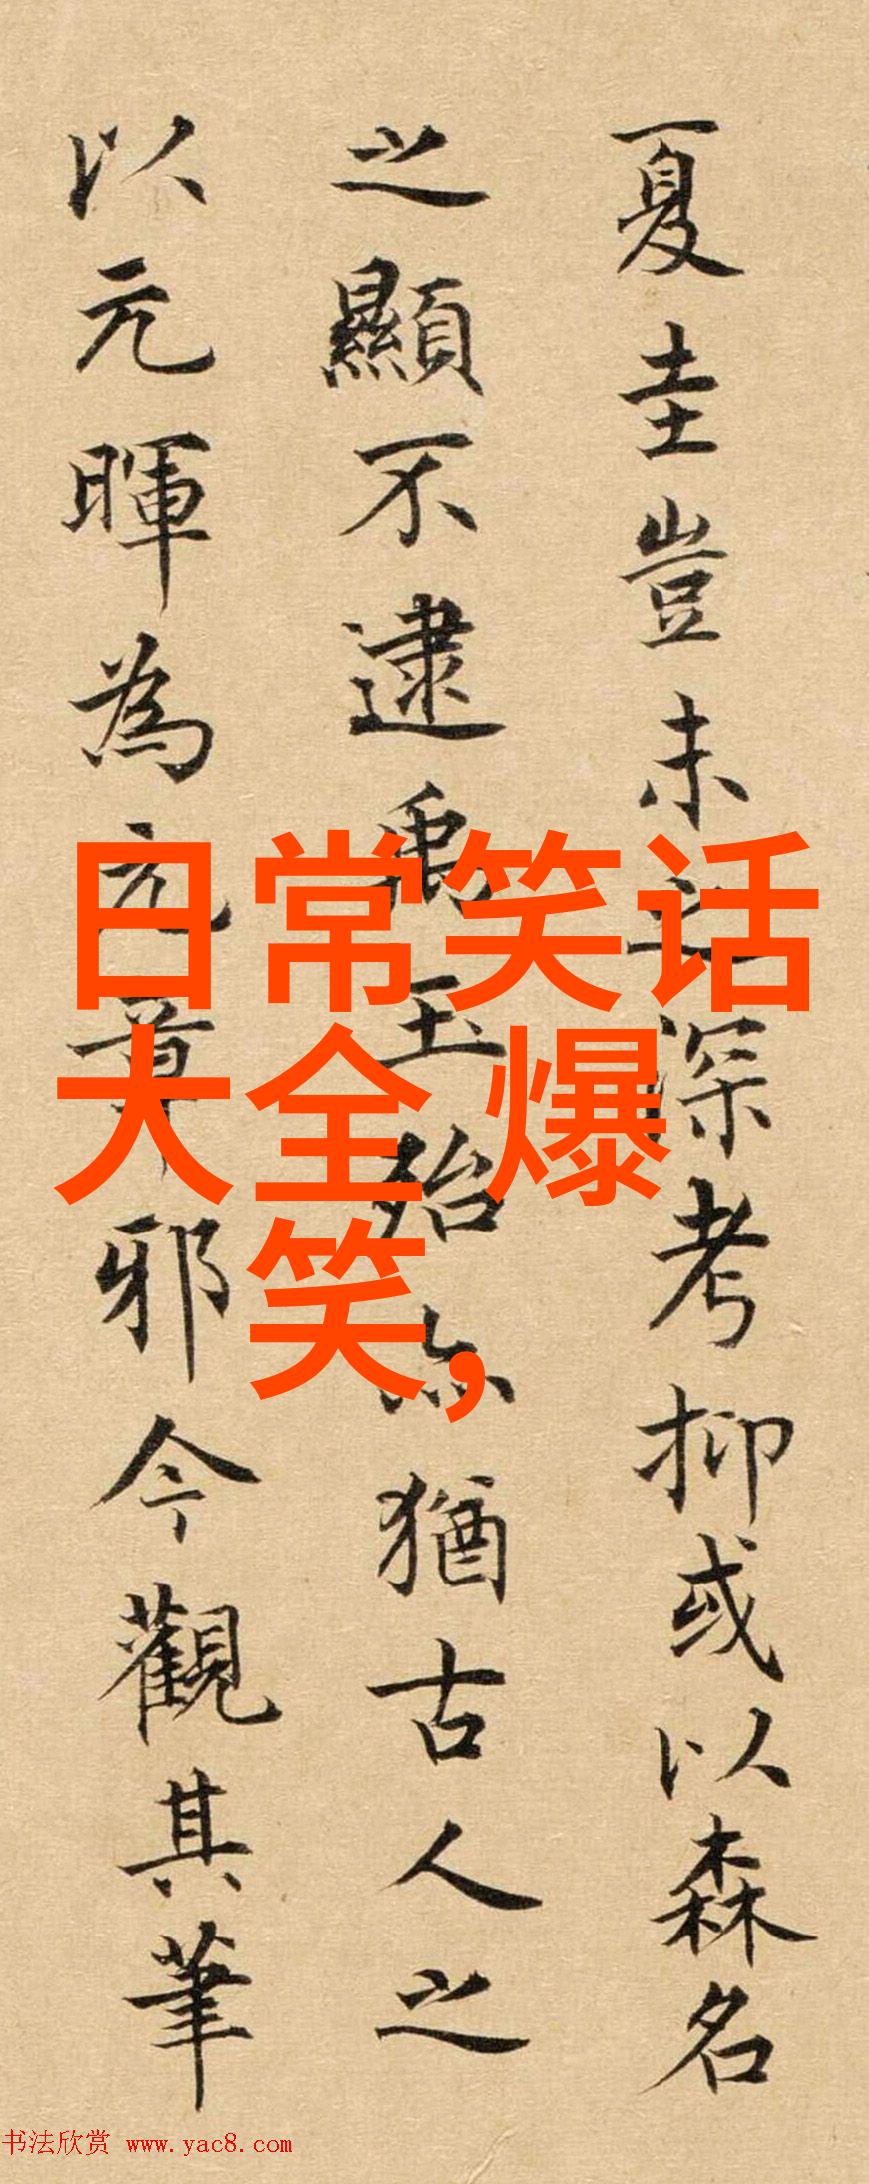 夏圭豈未之深考抑或以森名
之顯不逮禹玉殆亦猶古人之
以元暉為元章邪今觀其筆
日常笑话
大全 爆
笑,
书法欣赏 www.yac8.com